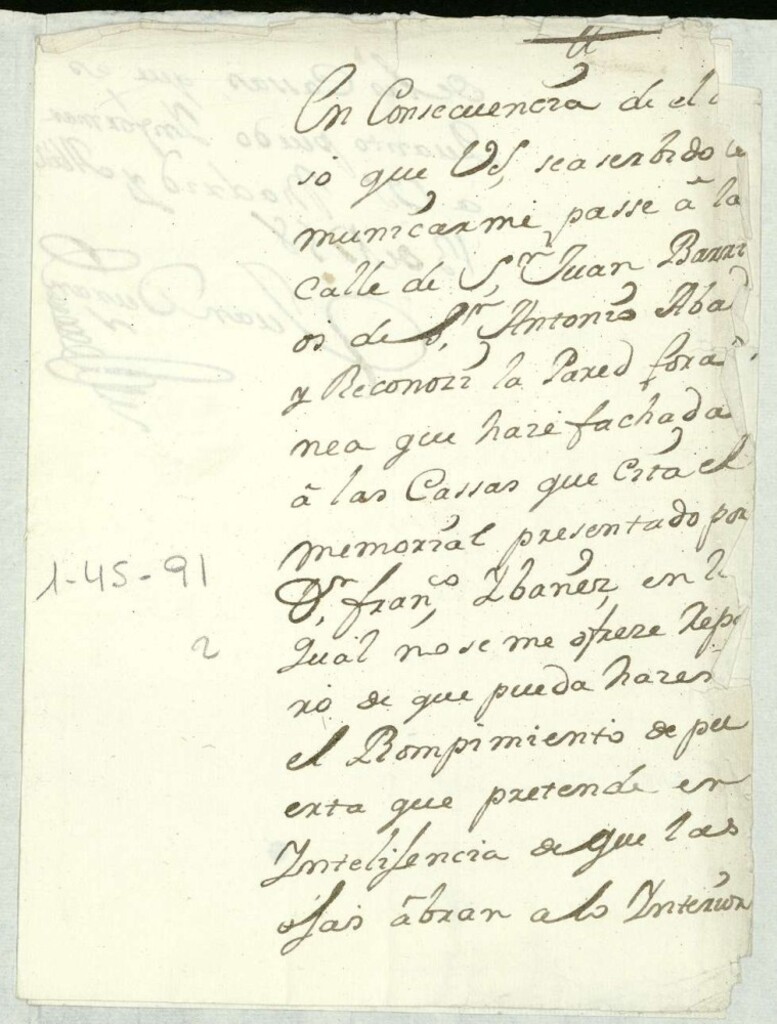 En Consecuencia de el
so que VS, sea serbido
municarme, passe â la
calle de S.n Juan Barri
os. de S.n Antonio Aba
y Reconozi la Pared fora
nea que haze fachada
â las Cassas que cita el
memorial presentado por
D.n fran.co Ybañez, en l
Qual no se me ofreze Rep
ro de que pueda hazer
el Rompimiento de pu
erta que pretende en
Ynteligencia de que las
ojas âbran a lo Ynterior
1-45-91
2